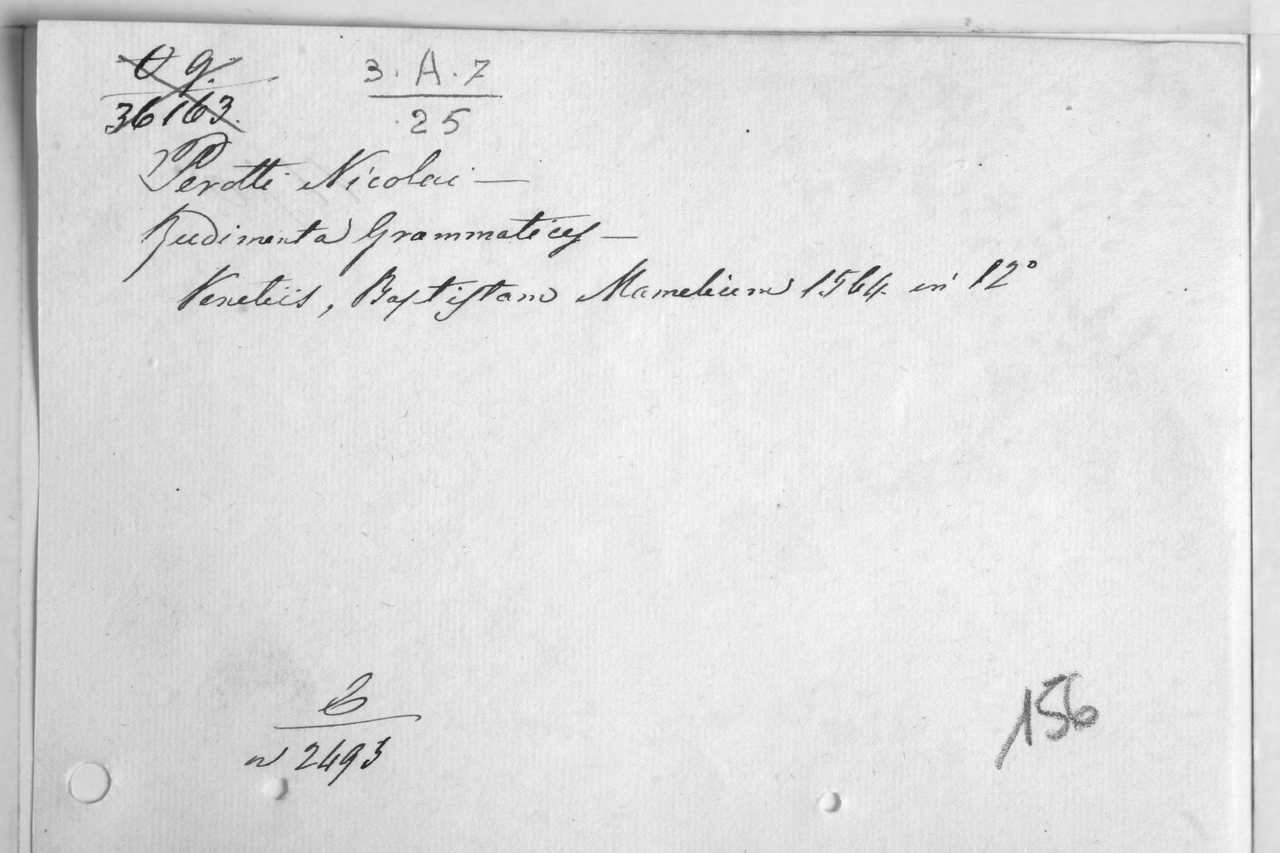 O g. 3. A. 7
36163. 25
Perotti Nicolai —
Rudimenta Grammatices —
Venetiis, Baptistam Mamelium 1564 in 12°
b
n 2493
156